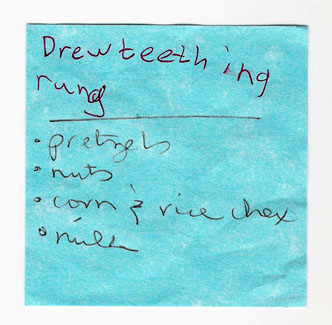 Drewteething
rung
• pretzels
• nuts
• corn & rice chex
•